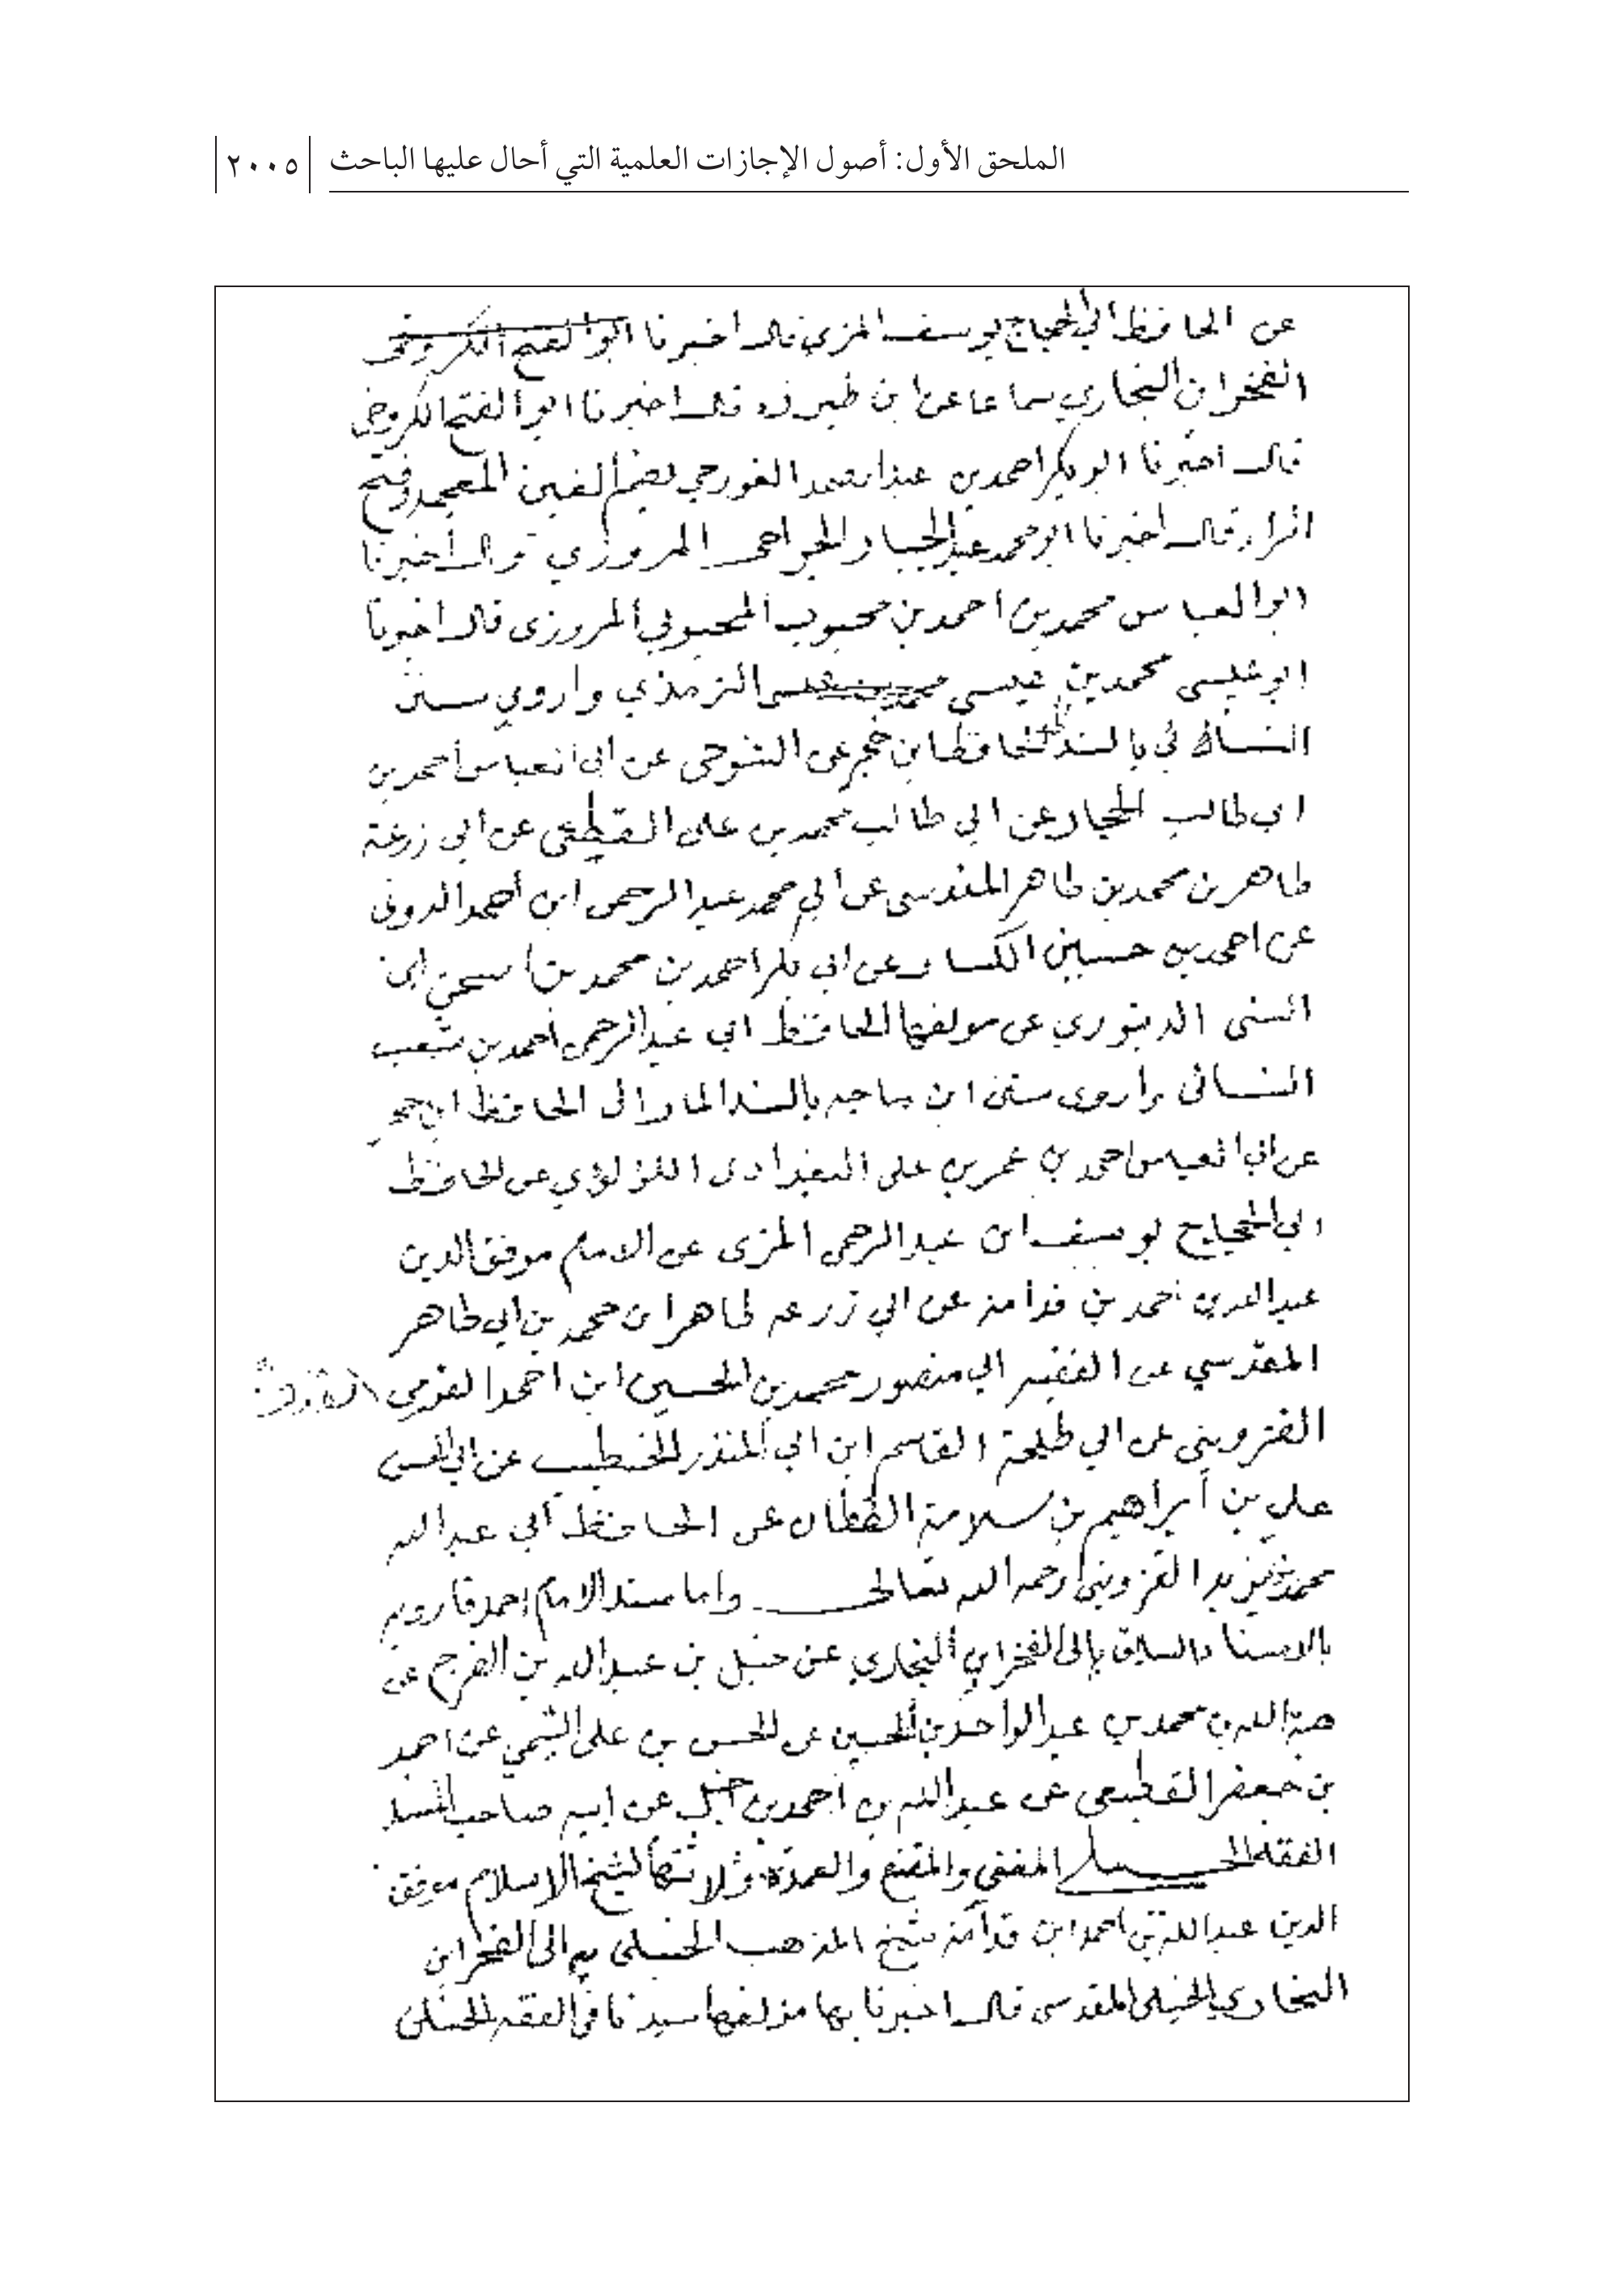 الملحق الأول: أصول الإجازات العلمية التي أحال عليها الباحث ٢٠٠٥
عن الحافظ ابي الحجاج يوسف المزي قال اخبرنا ابو الفتح الكروخي
الفخر ابن البخاري سماعا عن ابن طبرزد قال اخبرنا ابو الفتح الكروخي
قال اخبرنا ابو بكر احمد بن عبد الصمد الغورجي بضم الغين المعجمة وفتح
الراء قال اخبرنا ابو محمد عبد الجبار الجراحي المروزي قال أخبرنا
ابو العباس محمد بن احمد بن محبوب المحبوبي المروزى قال اخبرنا
ابو عيسى محمد بن عيسى الترمذي واروي سنن
النسائي بالسند للحافظ ابن حجر عن التنوخى عن ابى العباس أحمد بن
ابي طالب الحجار عن ابي طالب محمد بن على القطيعى عن أبى زرعة
طاهر بن محمد بن طاهر المقدسى عن أبي محمد عبد الرحمن ابن أحمد الدونى
عن احمد بن حسين الكسار عن ابى بكر أحمد بن محمد بن اسحق ابن
السنى الدينوري عن مولفها الحافظ ابى عبد الرحمن أحمد بن شعيب
النسائى وأروى سنن ابن ماجه بالسند المار الى الحافظ ابن حجر
عن ابى العباس احمد بن عمر بن على البغدادى اللؤلؤي عن الحافظ
ابي الحجاج يوسف ابن عبد الرحمن المزى عن الامام موفق الدين
عبد الله بن أحمد بن قدامة عن ابي زرعه طاهر ابن محمد بن ابى طاهر
المقدسي عن الفقيه ابي منصور محمد بن الحسين ابن احمد القومى
القزوينى عن ابي طلحة القاسم ابن ابي المنذر الخطيب عن ابي الحسن
على بن أبراهيم بن سلامة القطان عن الحافظ أبى عبد الله
محمد بن يزيد القزوينى رحمه الله تعالى واما مسند الامام احمد فارويه
بالاسناد السابق الى الفخر ابن البخاري عن حنبل بن عبد الله بن الفرج عن
هبة الله بن محمد بن عبد الواحد بن الحسين عن الحسن بن على التيمي عن احمد
بن جعفر القطيعى عن عبد الله بن أحمد بن حنبل عن ابيه صاحب المسند
الفقه الحنبلي المغنى والمقنع والعمدة وثلاثتها لشيخ الاسلام موفق
الدين عبد الله بن احمد ابن قدامة شيخ المذهب الحنبلى به الى الفخر ابن
البخاري الحنبلى المقدسى قال اخبرنا بها مؤلفها سيدنا في الفقه الحنبلى